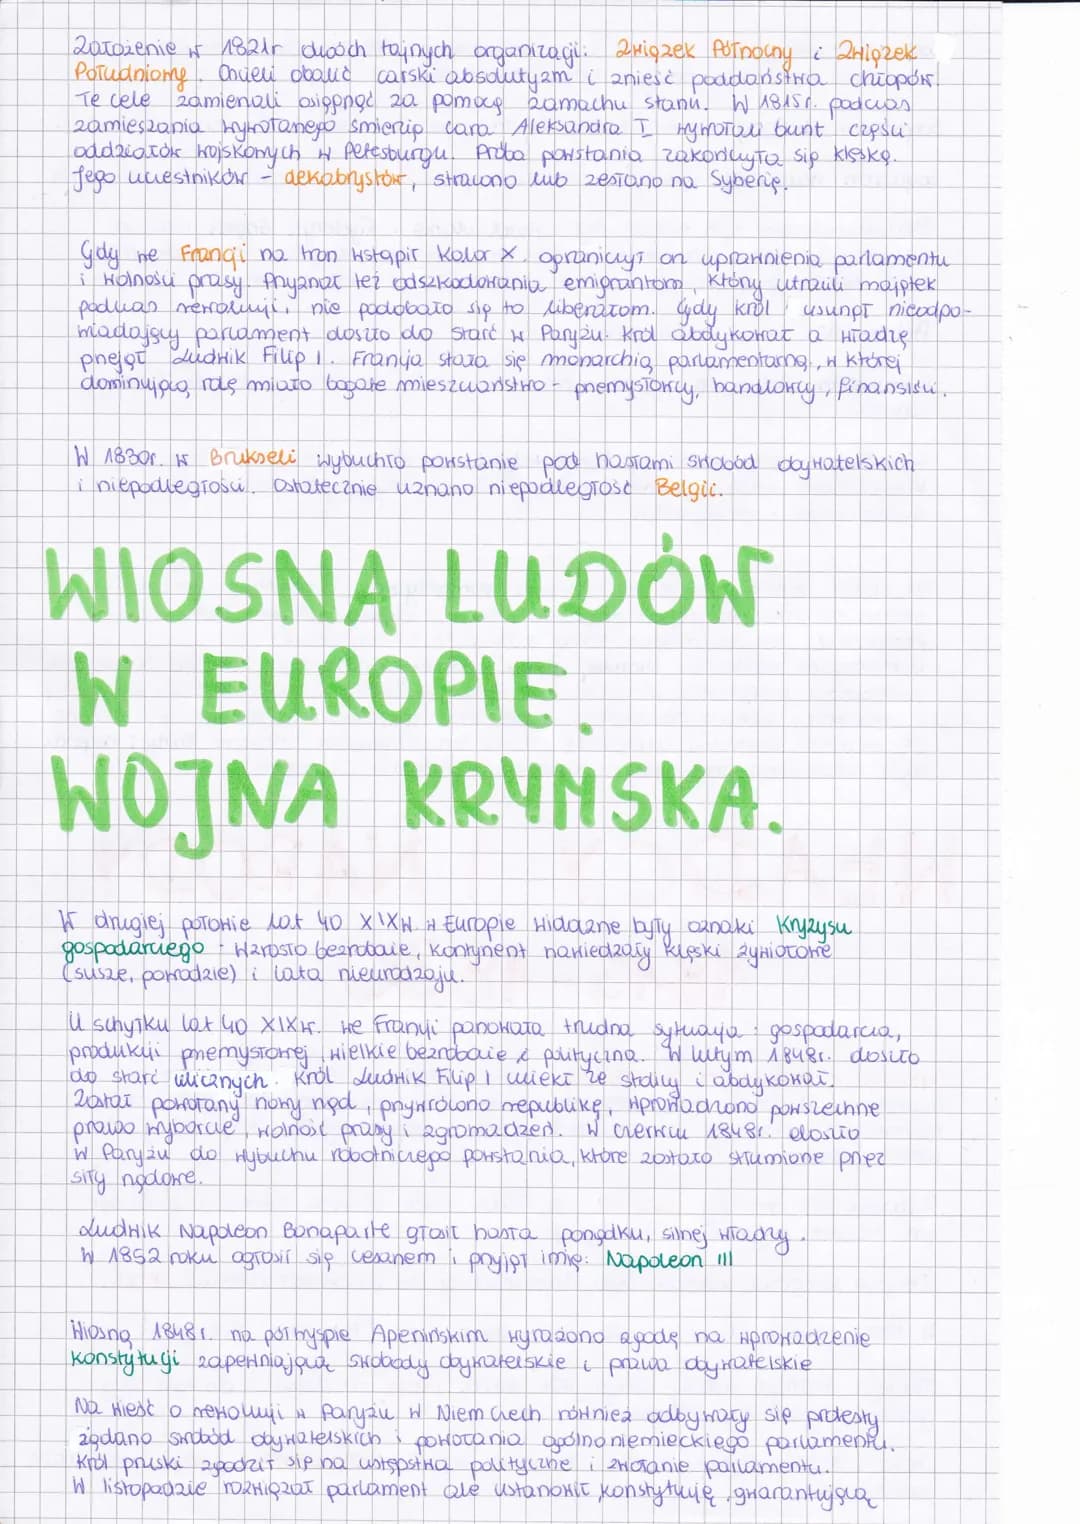 Założenie w 1821r dwóch tajnych organizacji: Związek Północny i Związek
Południowy. Chcieli obalić carski absolutyzm i znieść poddaństwa chłopów.
Te cele zamierzali osiągnąć za pomocą zamachu stanu. W 1815r. podczas
zamieszania wywołanego śmiercią cara Aleksandra I wywołali bunt części
oddziałów wojskowych w Petesburgu. Próba powstania zakończyła się klęską.
Jego uczestników - dekabrystów, stracono lub zesłano na Syberię.
Gdy we Francji na tron wstąpił Karol X ograniczył on uprawnienia parlamentu
i wolności prasy. Przyznał też odszkodowania emigrantom, którzy utracili majątek
podczas rewolucji, nie podobało się to liberałom. Gdy król usunął nieodpo-
wiadający parlament doszło do starć w Paryżu. Król abdykował a władzę
przejął Ludwik Filip I. Francja stała się monarchią parlamentarną, w której
dominującą rolę miało bogate mieszczaństwo - przemysłowcy, handlowcy, finansiści.
W 1830r. w Brukseli wybuchło powstanie pod hasłami swobód obywatelskich
i niepodległości. Ostatecznie uznano niepodległość Belgii.
WIOSNA LUDÓW
W EUROPIE.
WOJNA KRYMSKA.
W drugiej połowie lat 40 XIXw. w Europie widoczne były oznaki kryzysu
gospodarczego: wzrosło bezrobocie, kontynent nawiedzały klęski żywiołowe
(susze, powodzie) i lata nieurodzaju.
U schyłku lat 40 XIXw. we Francji panowała trudna sytuacja: gospodarcza,
produkcji przemysłowej, wielkie bezrobocie i polityczna. W lutym 1848r. doszło
do starć ulicznych. Król Ludwik Filip I uciekł ze stolicy i abdykował.
Został powołany nowy rząd, przywrócono republikę, wprowadzono powszechne
prawo wyborcze, wolność prasy i zgromadzeń. W czerwcu 1848r. doszło
w Paryżu do wybuchu robotniczego powstania, które zostało stłumione przez
siły rządowe.
Ludwik Napoleon Bonaparte głosił hasła porządku, silnej władzy.
W 1852 roku ogłosił się cesarzem i przyjął imię: Napoleon III
Wiosną 1848r. na półwyspie Apenińskim wyrażono zgodę na wprowadzenie
konstytucji zapewniającą swobody obywatelskie i prawa obywatelskie
Na wieść o rewolucji w Paryżu w Niemczech również odbywały się protesty
żądano swobód obywatelskich i powołania ogólnoniemieckiego parlamentu.
Król pruski zgodził się na ustępstwa polityczne i zwołanie parlamentu.
W listopadzie rozwiązał parlament ale ustanowił konstytucję gwarantującą